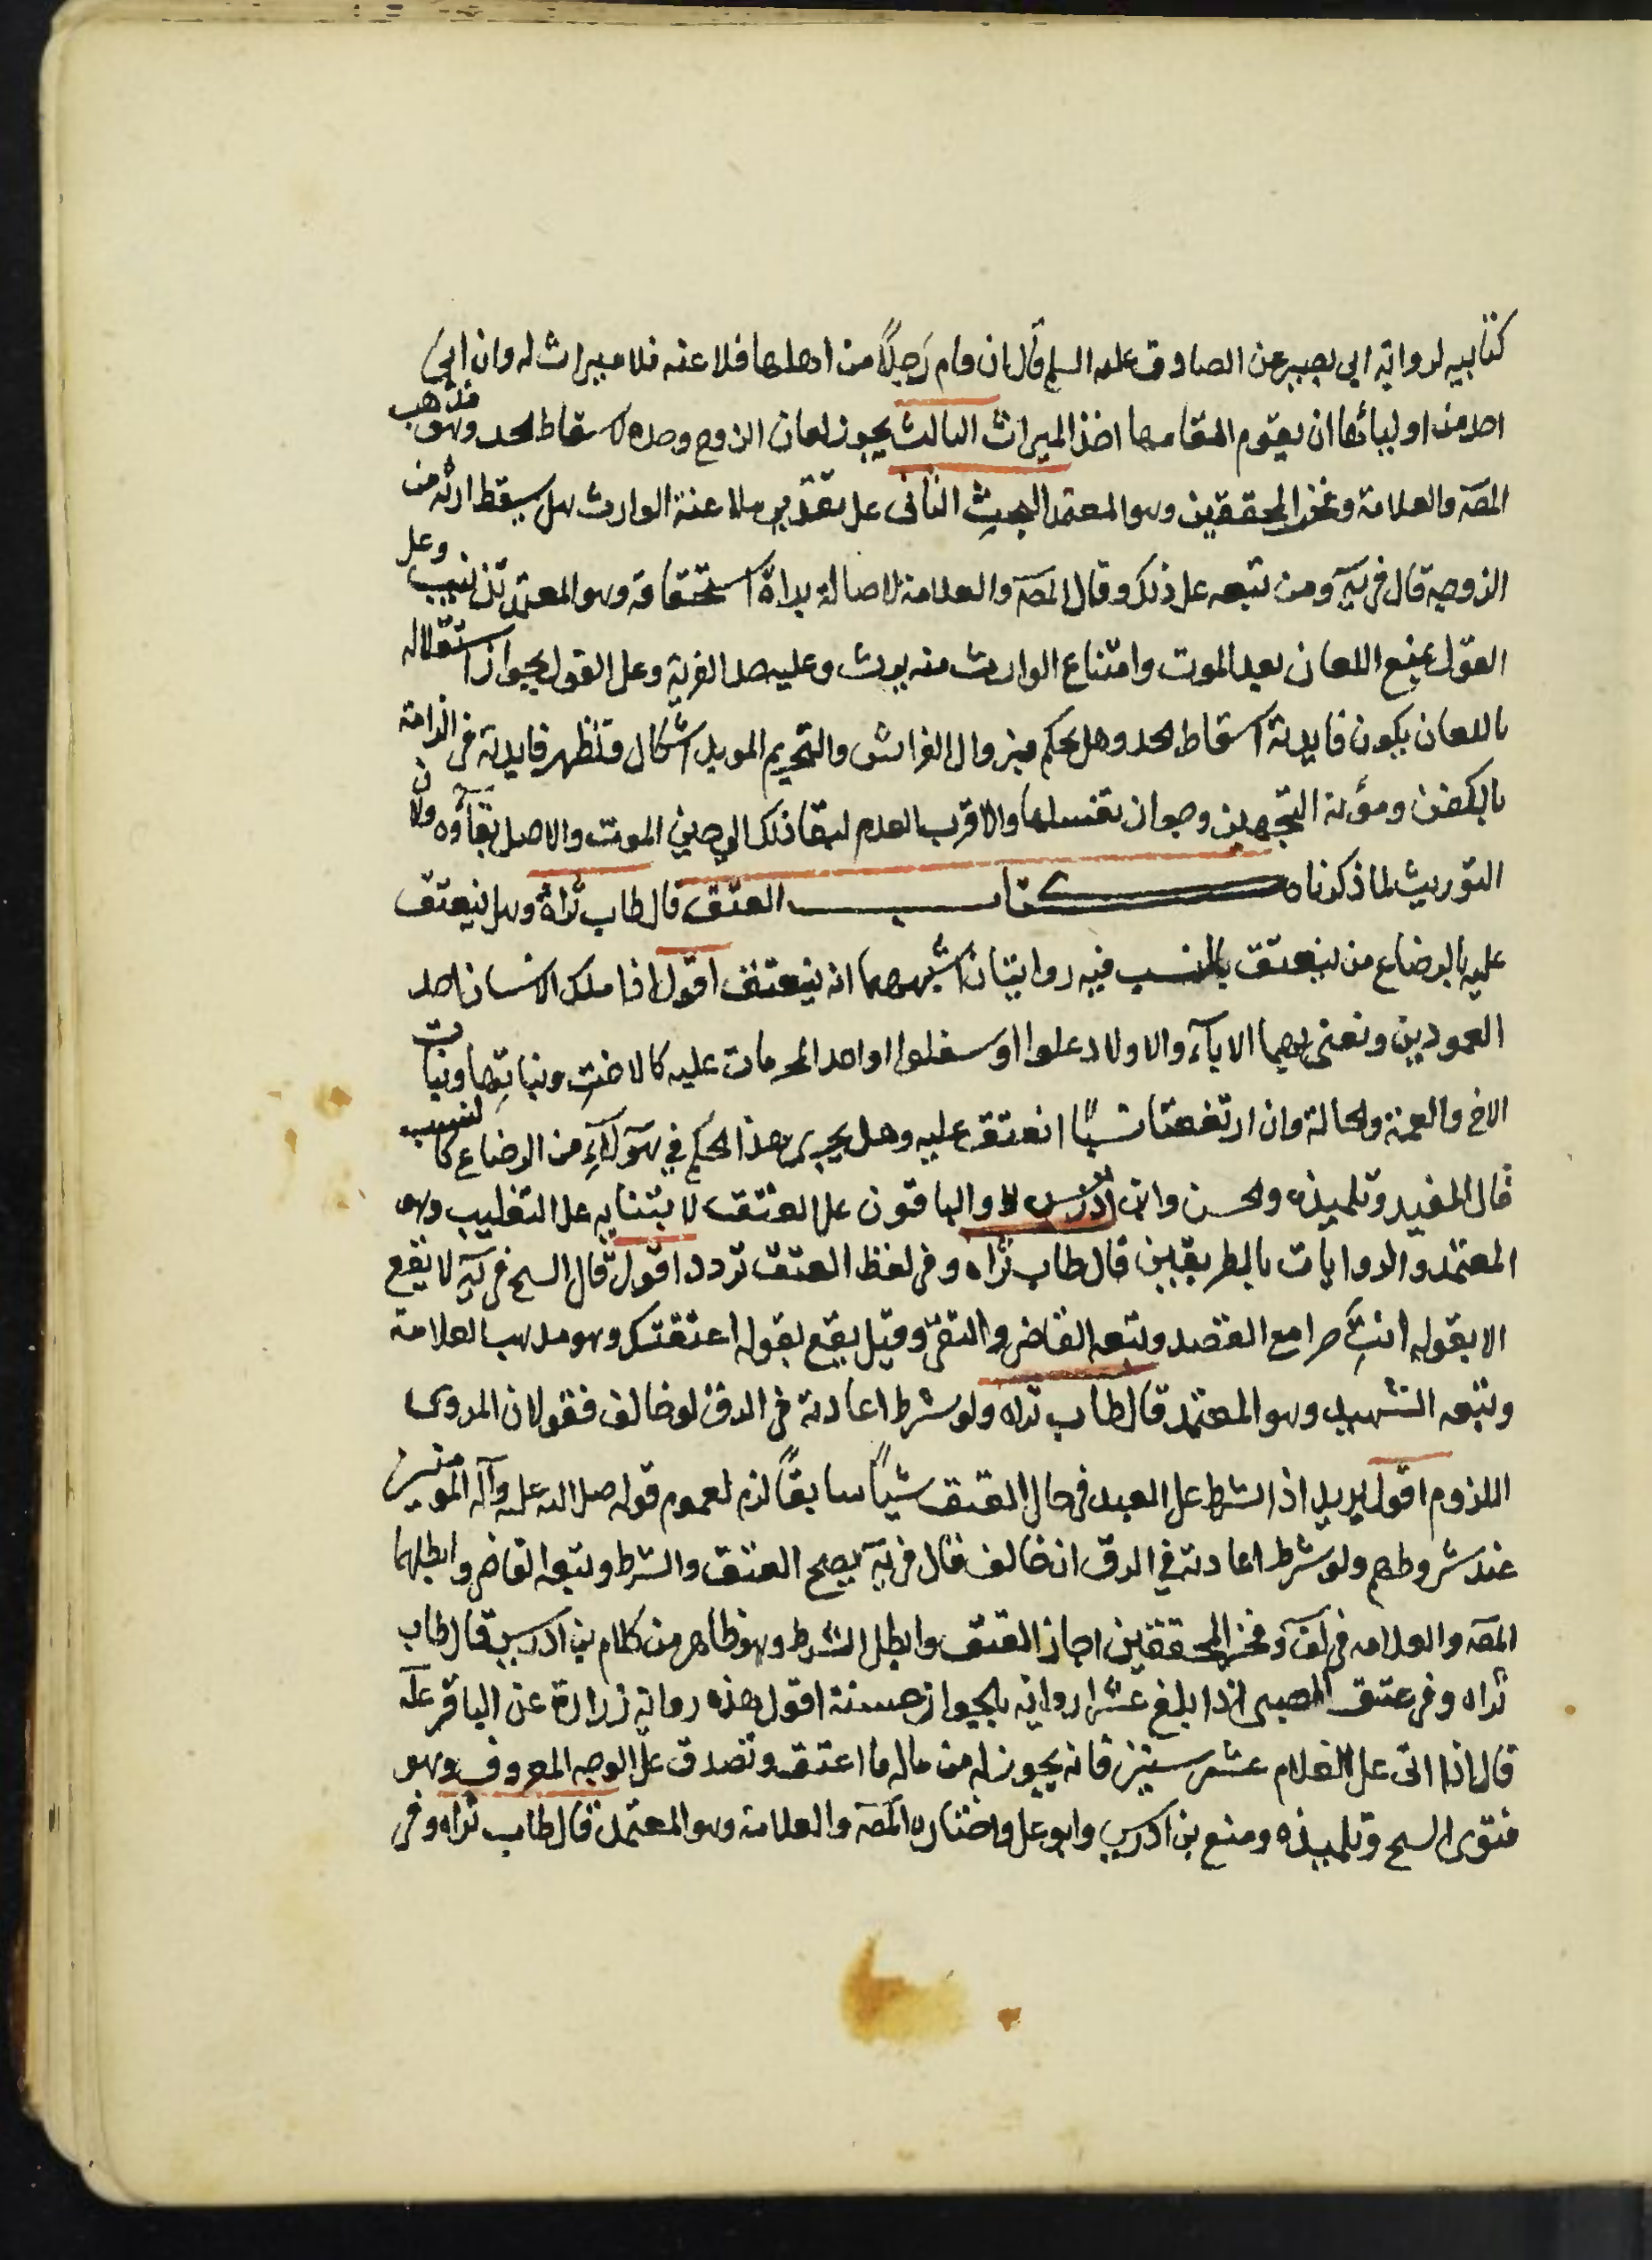 كتابيه لرواية ابي بصير عن الصادق عليه السلم قال ان قام رجلاً من اهلها فلاعنه فلا ميراث له وان ابى
احد من اوليائها ان يقوم المقامها اخذ الميراث الثالث يجوز لعان الزوج وحده لاسقاط الحد وهو مذهب
المصَه والعلامة وفخر المحققين وهو المعتمد البحث الثاني على تقدير ملاعنة الوارث هل يسقط ارثه من
الزوجيه قال في يَه ومن تبعه على ذلك وقال المصَه والعلامة لاصالة براة استحقاقه وهو المعتمد تذنيب وعلى
القول بمنع اللعان بعد الموت وامتناع الوارث منه يورث وعليه حد الفرية وعلى القول بجواز استقلاله
باللعان يكون فايدته اسقاط الحد وهل يحكم بزوال الفراش والتحريم الموبد اشكال وتظهر فايدته في الزامه
بالكفن ومؤنة التجهيز وجواز تغسيلها والاقرب العدم لبقا ذلك الي حين الموت والاصل بقاؤه ولان
التوريث لما ذكرناه كتاب العتق قال طاب ثراه وهل ينعتق
عليه بالرضاع من ينعتق بالنسب فيه روايتان اشهرهما انه ينعتق اقول اذا ملك الانسان احد
العمودين ونعنى بهما الاباء والاولاد علوا او سفلوا او احد المحرمات عليه كالاخت وبناتها وبنات
الاخ والعمة والخالة وان ارتفعتا نسبًا انعتق عليه وهل يجرى هذا الحكم في هولاء من الرضاع كالنسب
قال المفيد وتلميذه والحسن وابن ادريس لا والباقون على العتق لابتنايه على التغليب وهو
المعتمد والروايات بالطريقين قال طاب ثراه وفي لفظ العتق تردد اقول قال الشيخ في يَه لا يقع
الا بقوله انت حر مع القصد وتبعه القاضي والتقي وقيل يقع بقوله اعتقتك وهو مذهب العلامة
وتبعه الشهيد وهو المعتمد قال طاب ثراه ولو شرط اعادته في الرق لو خالف فقولان المروى
اللزوم اقول يريد اذا شرط على العبد في حال العتق شيًا سابقًا لزم لعموم قوله صلى الله عليه وآله المومنين
عند شروطهم ولو شرط اعادته في الرق ان خالف قال في يَه يصح العتق والشرط وتبعه القاضي وابطلهما
المصَه والعلامه في لَف وفخر المحققين اجاز العتق وابطل الشرط وهو ظاهر من كلام بن ادريس قال طاب
ثراه وفي عتق الصبى اذا بلغ عشرا رواية بالجواز حسنة اقول هذه رواية زرارة عن الباقر علَه
قال اذا اتى على الغلام عشر سنين فانه يجوز له من ماله ما اعتق وتصدق على الوجه المعروف وهو
فتوى الشيخ وتلميذه ومنع بن ادريس وابو على واختاره المصَه والعلامة وهو المعتمد قال طاب ثراه وفي